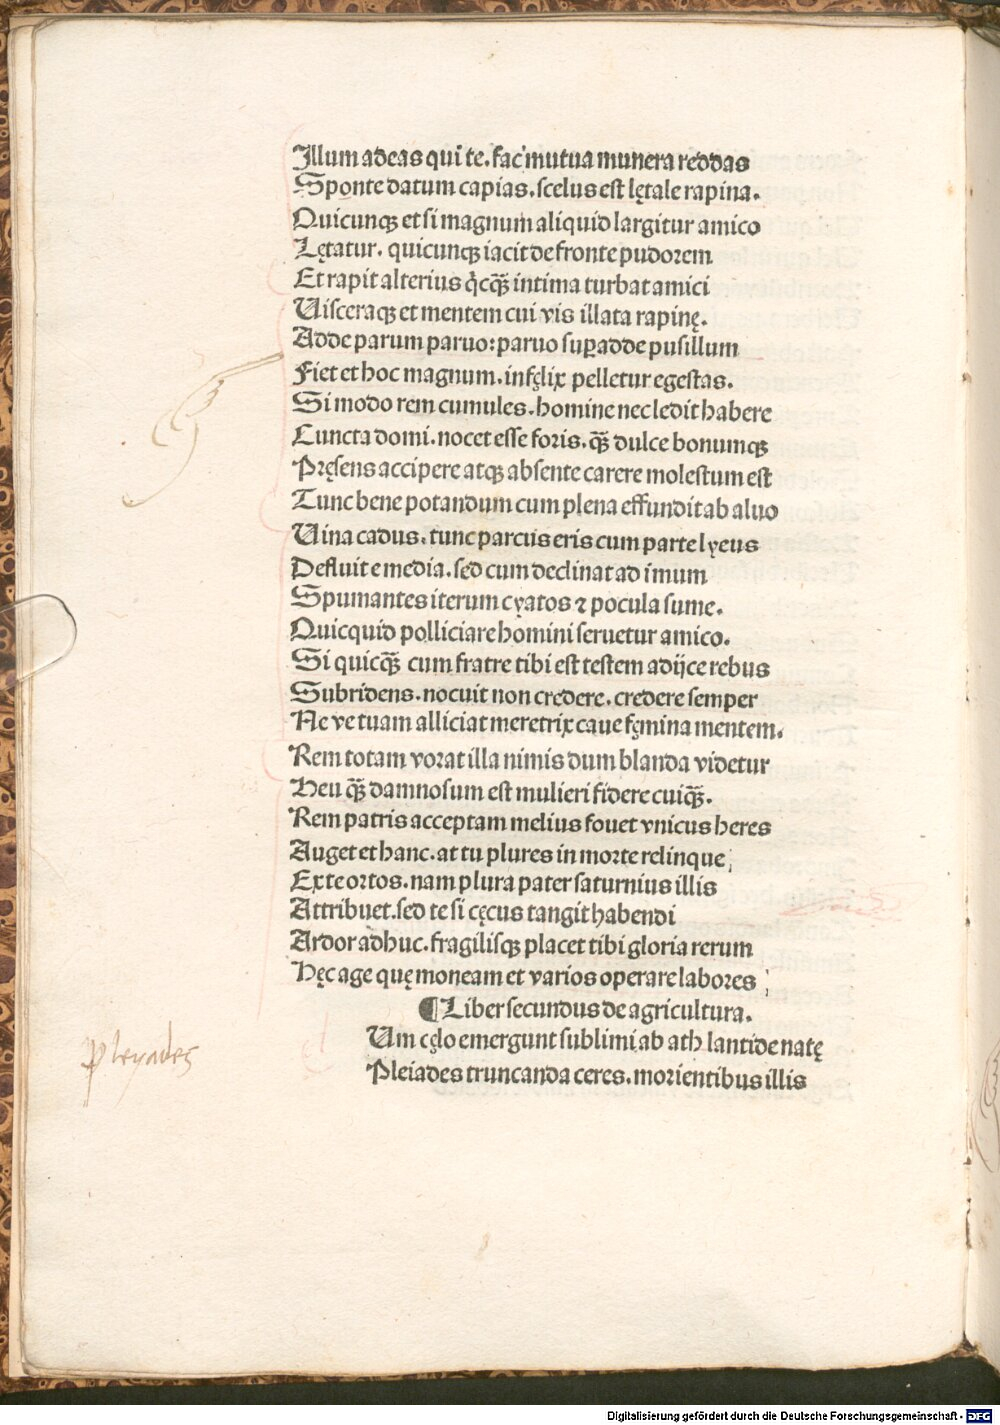 Illum adeas qui te. fac mutua munera reddas
Sponte datum capias. scelus est lętale rapina.
Quicunqꝫ et si magnum aliquid largitur amico
Lętatur. quicunqꝫ iacit de fronte pudorem
Et rapit alterius q̇cq̃ꝫ intima turbat amici
Visceraqꝫ et mentem cui vis illata rapinę.
Adde parum paruo: paruo suꝑadde pusillum
Fiet et hoc magnum. infęlix pelletur egestas.
Si modo rem cumules. homine nec ledit habere
Cuncta domi. nocet esse foris. q̃ꝫ dulce bonumqꝫ
Pręsens accipere atqꝫ absente carere molestum est
Tunc bene potandum cum plena effundit ab aluo
Vina cadus. tunc parcus eris cum parte lyeus
Defluit e media. sed cum declinat ad imum
Spumantes iterum cyatos ⁊ pocula sume.
Quicquid polliciare homini seruetur amico.
Si quicq̃ꝫ cum fratre tibi est testem adijce rebus
Subridens. nocuit non credere. credere semper
Ne ve tuam alliciat meretrix caue fęmina mentem.
Rem totam vorat illa nimis dum blanda videtur
Heu q̃ꝫ damnosum est mulieri fidere cuiq̃ꝫ.
Rem patris acceptam melius fouet vnicus heres
Auget et hanc. at tu plures in morte relinque
Ex te ortos. nam plura pater saturnius illis
Attribuet. sed te si cęcus tangit habendi
Ardor adhuc. fragilisqꝫ placet tibi gloria rerum
Hęc age quę moneam et varios operare labores
¶Liber secundus de agricultura.
Um cęlo emergunt sublimi ab ath lantide natę
Pleyades
Pleiades truncanda ceres. morientibus illis
Digitalisierung gefördert durch die Deutsche Forschungsgemeinschaft - DFG